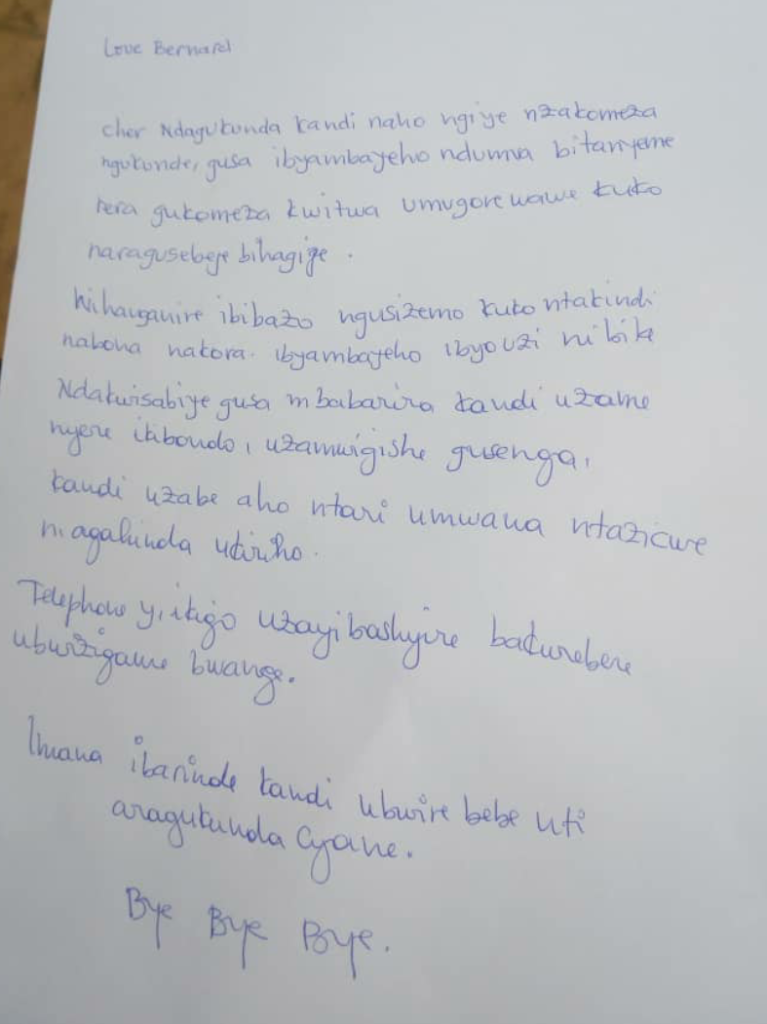 Love Bernard
cher Ndagukunda kandi naho ngiye nzakomeza
ngukunde, gusa ibyambayeho ndumva bitanyeme
rera gukomeza kwitwa umugore wawe kuko
naragusebeje bihagije.
Wihanganire ibibazo ngusizemo kuko ntakindi
nabona nakora. ibyambayeho ibyouzi ni bik
Ndakwisabiye gusa mbabarira kandi uzame
nyere ikibondo, uzamwigishe gusenga,
kandi uzabe aho ntari umwana ntazicwe
n'agahinda utiriho.
Telephone y'ikigo uzayibashyire bakurebere
ubwizigame bwange.
Imana ibarinde kandi ubwire bebe uti
aragukunda Cyane.
Bye Bye Bye.